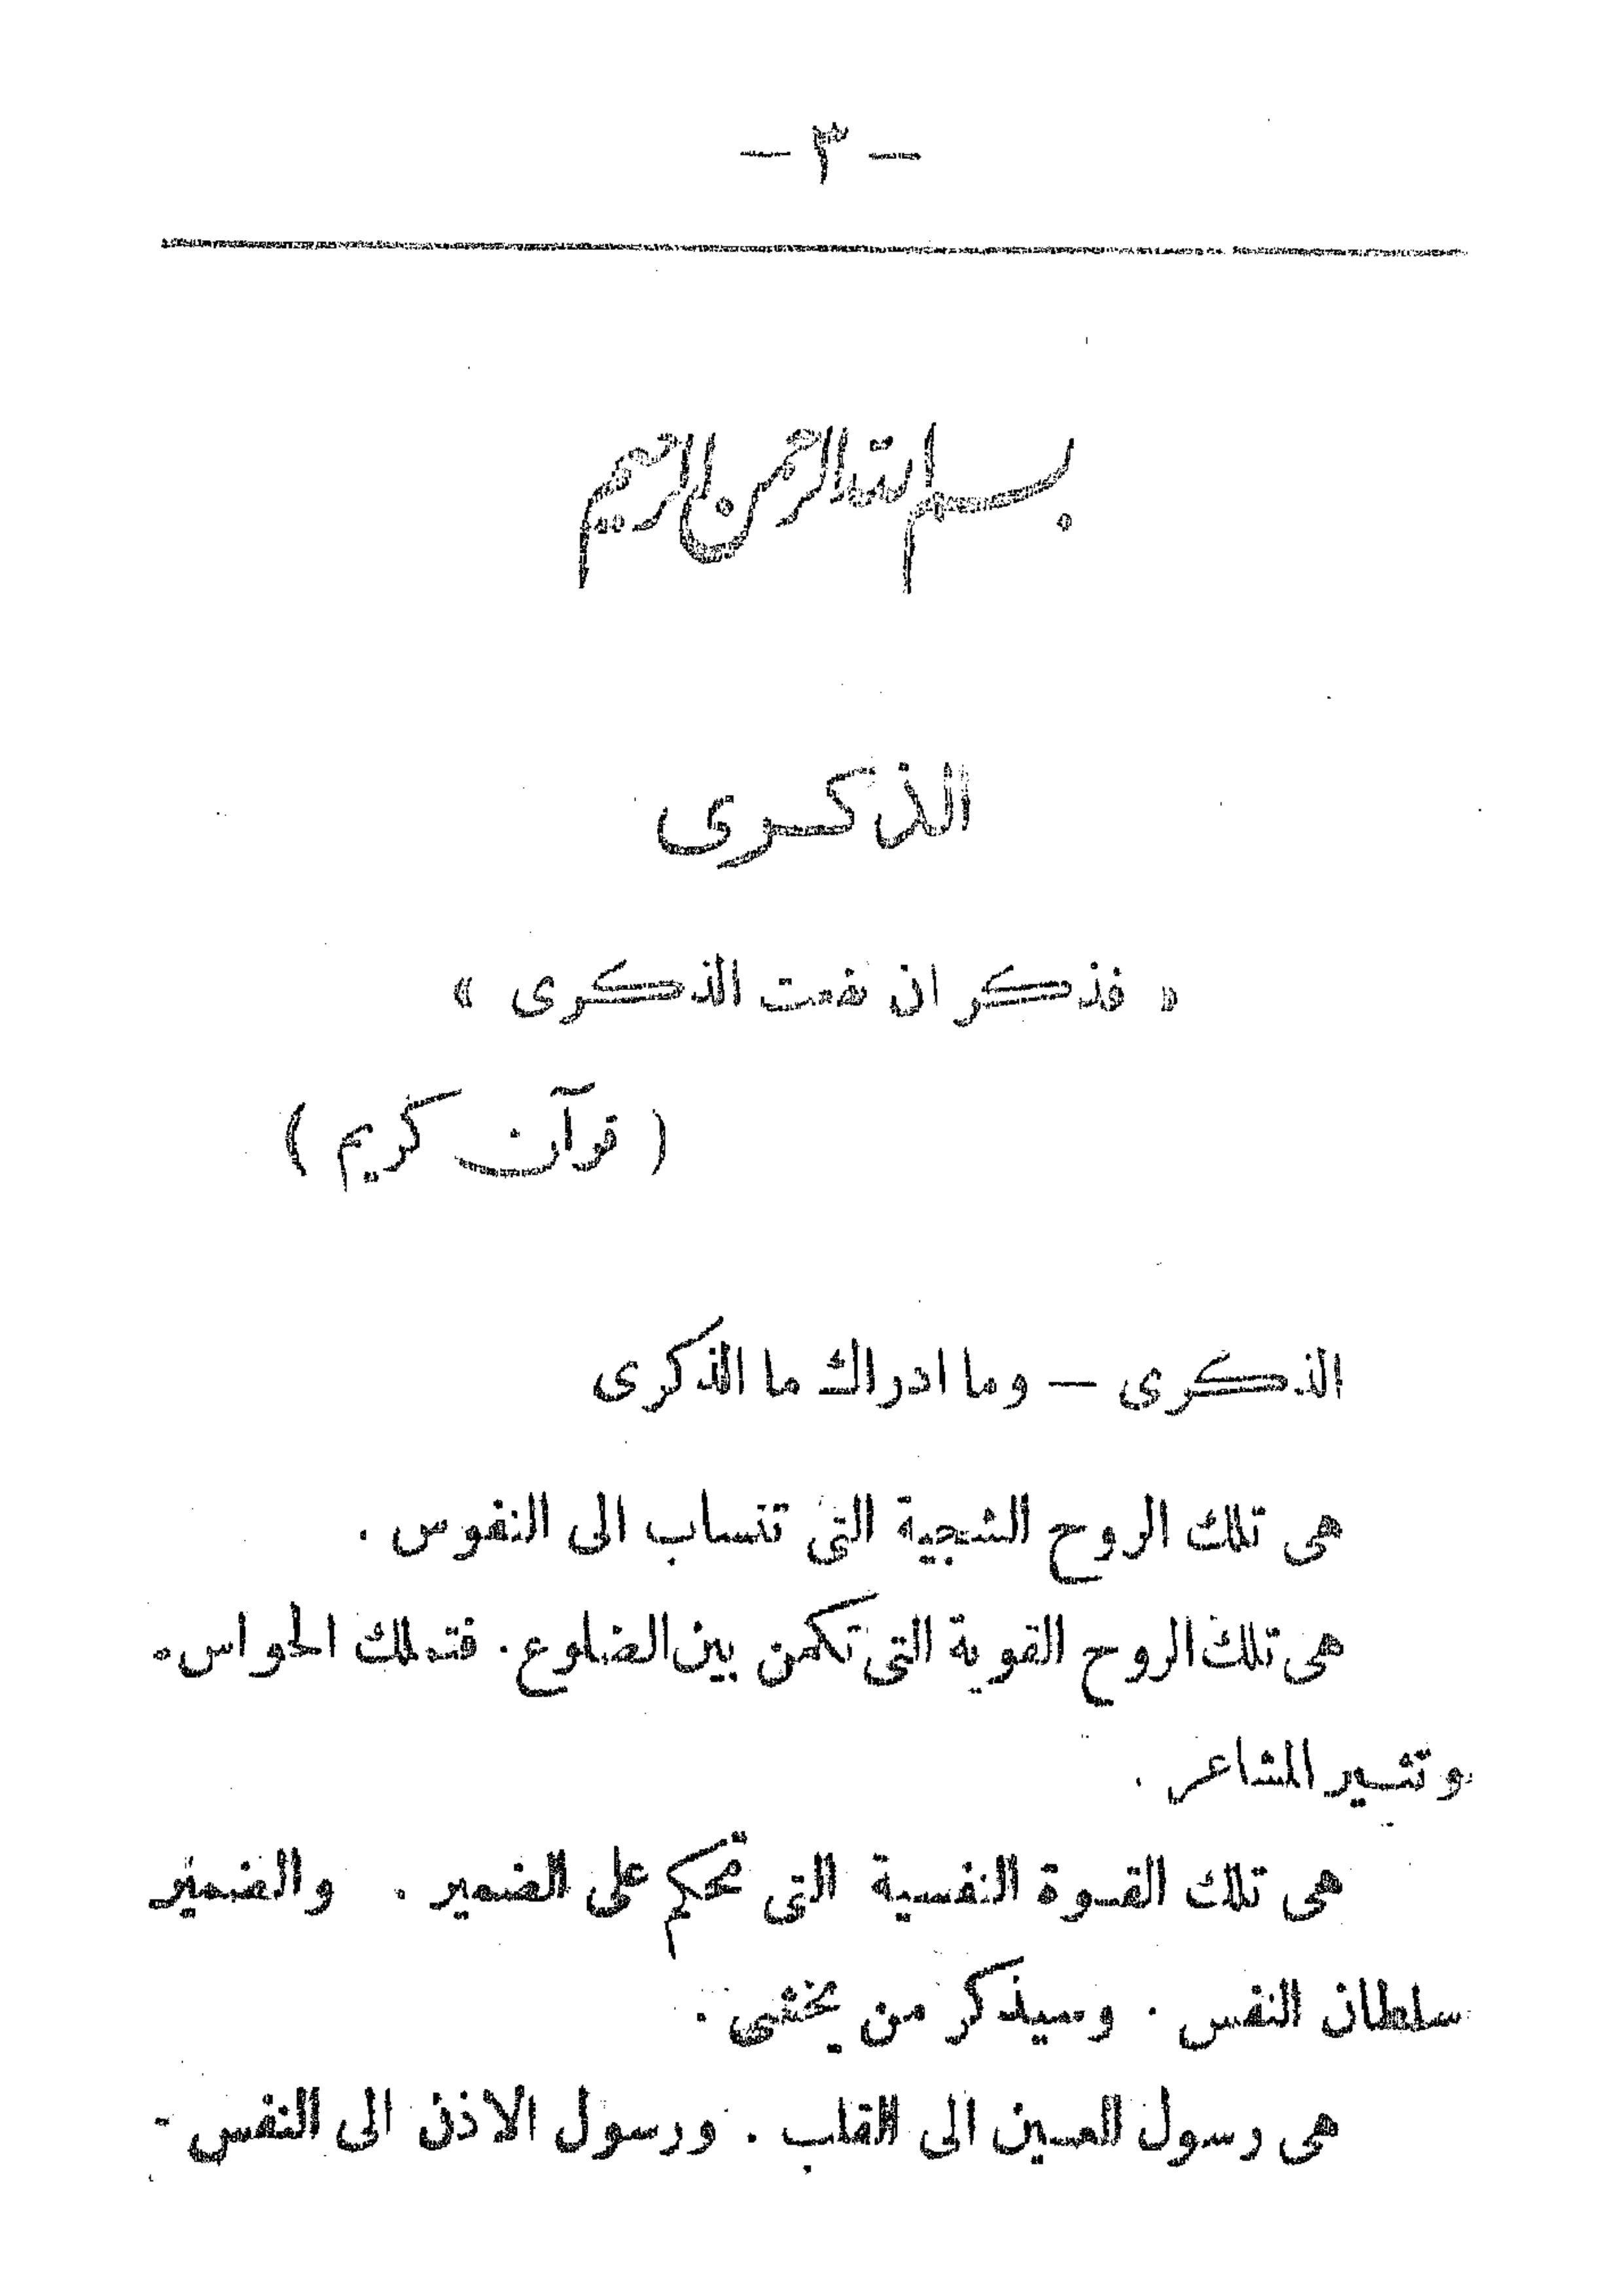 — ٣ —
بسم الله الرحمن الرحيم
الذكرى
« فذكر ان نفعت الذكرى »
( قرآن كريم )
الذكرى — وما ادراك ما الذكرى
هى تلك الروح الشجية التى تنساب الى النفوس .
هى تلك الروح القوية التى تكمن بين الضلوع . فتملك الحواس .
وتثير المشاعر .
هى تلك القوة النفسية التى تحكم على الضمير . والضمير
سلطان النفس . وسيذكر من يخشى .
هى رسول العين الى القلب . ورسول الاذن الى النفس .